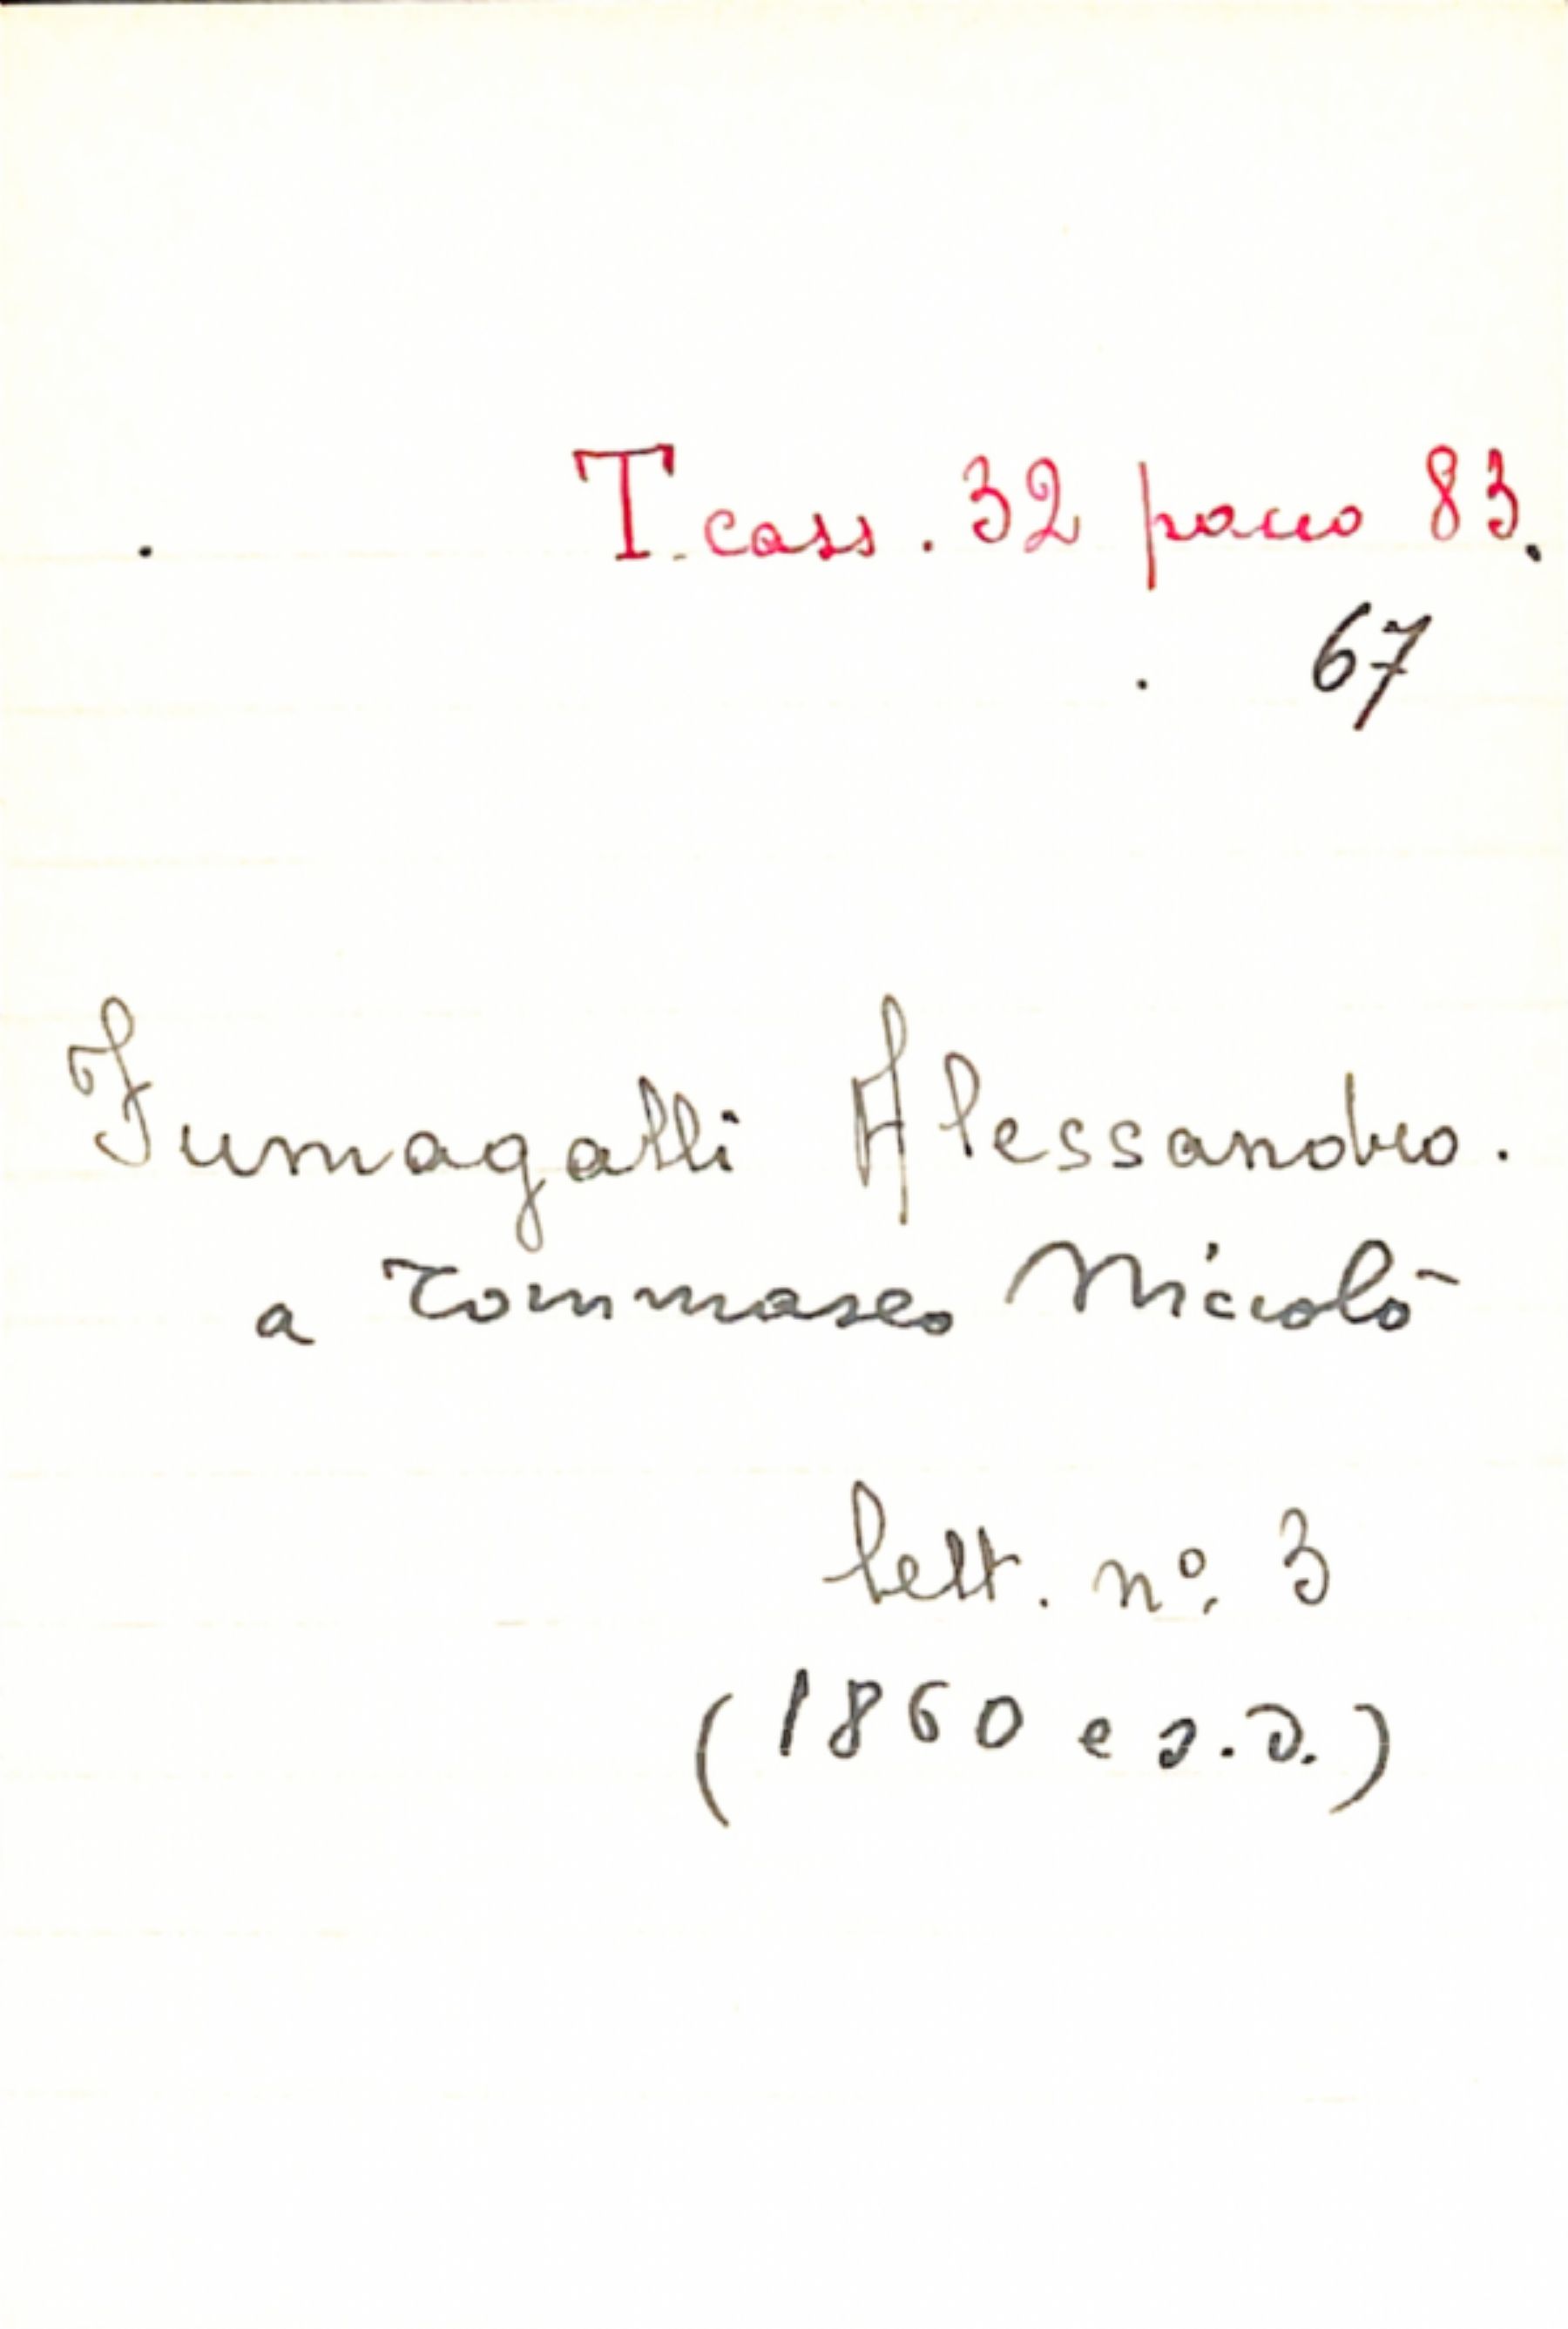 T. cass. 32 pacco 83.
67
Fumagalli Alessandro.
a Tommaseo Niccolò
lett. nº. 3
(1860 e s.d.)